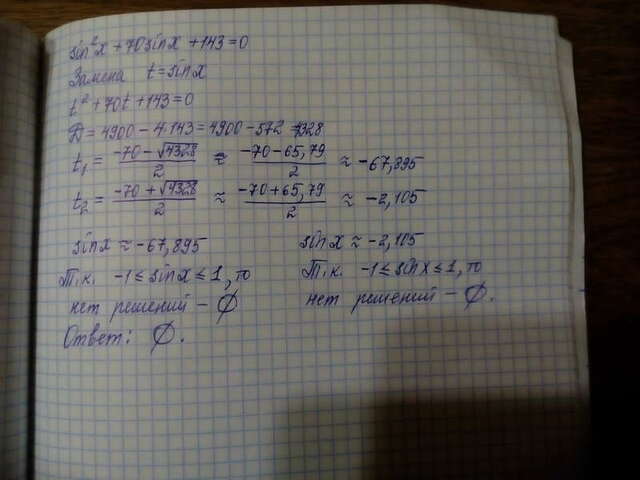 sin²x + 70sinx + 143 = 0
Замена t = sinx
t² + 70t + 143 = 0
D = 4900 - 4·143 = 4900 - 572 = 4328
t₁ = (-70 - √4328)/2 ≈ (-70 - 65,79)/2 ≈ -67,895
t₂ = (-70 + √4328)/2 ≈ (-70 + 65,79)/2 ≈ -2,105
sinx ≈ -67,895
Т.к. -1 ≤ sinx ≤ 1, то
нет решений - ∅
sinx ≈ -2,105
Т.к. -1 ≤ sinx ≤ 1, то
нет решений - ∅.
Ответ: ∅.